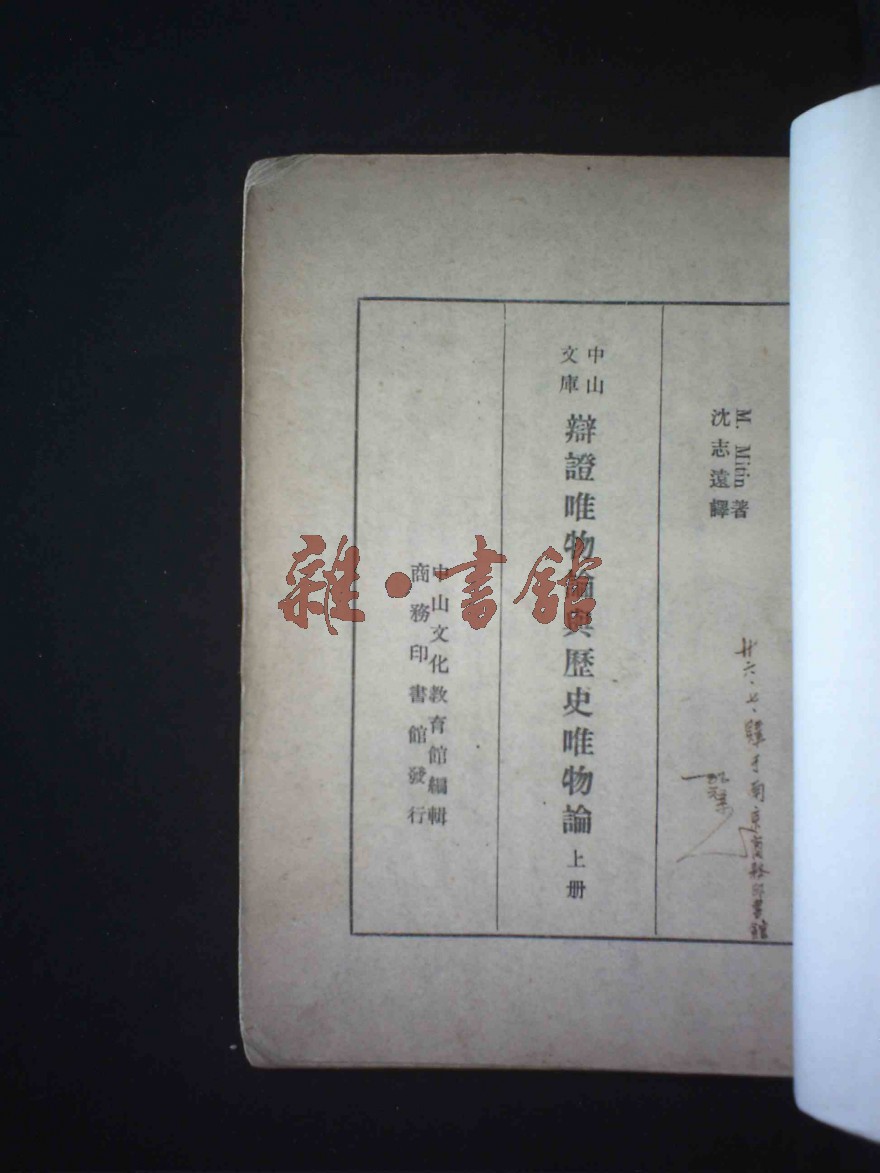 M. Mitin 著
沈志遠譯
廿六、七、購于南京商務印書館
中山
文庫
辯證唯物論與歷史唯物論 上册
中山文化教育館編輯
商務印書館發行
雜·書館